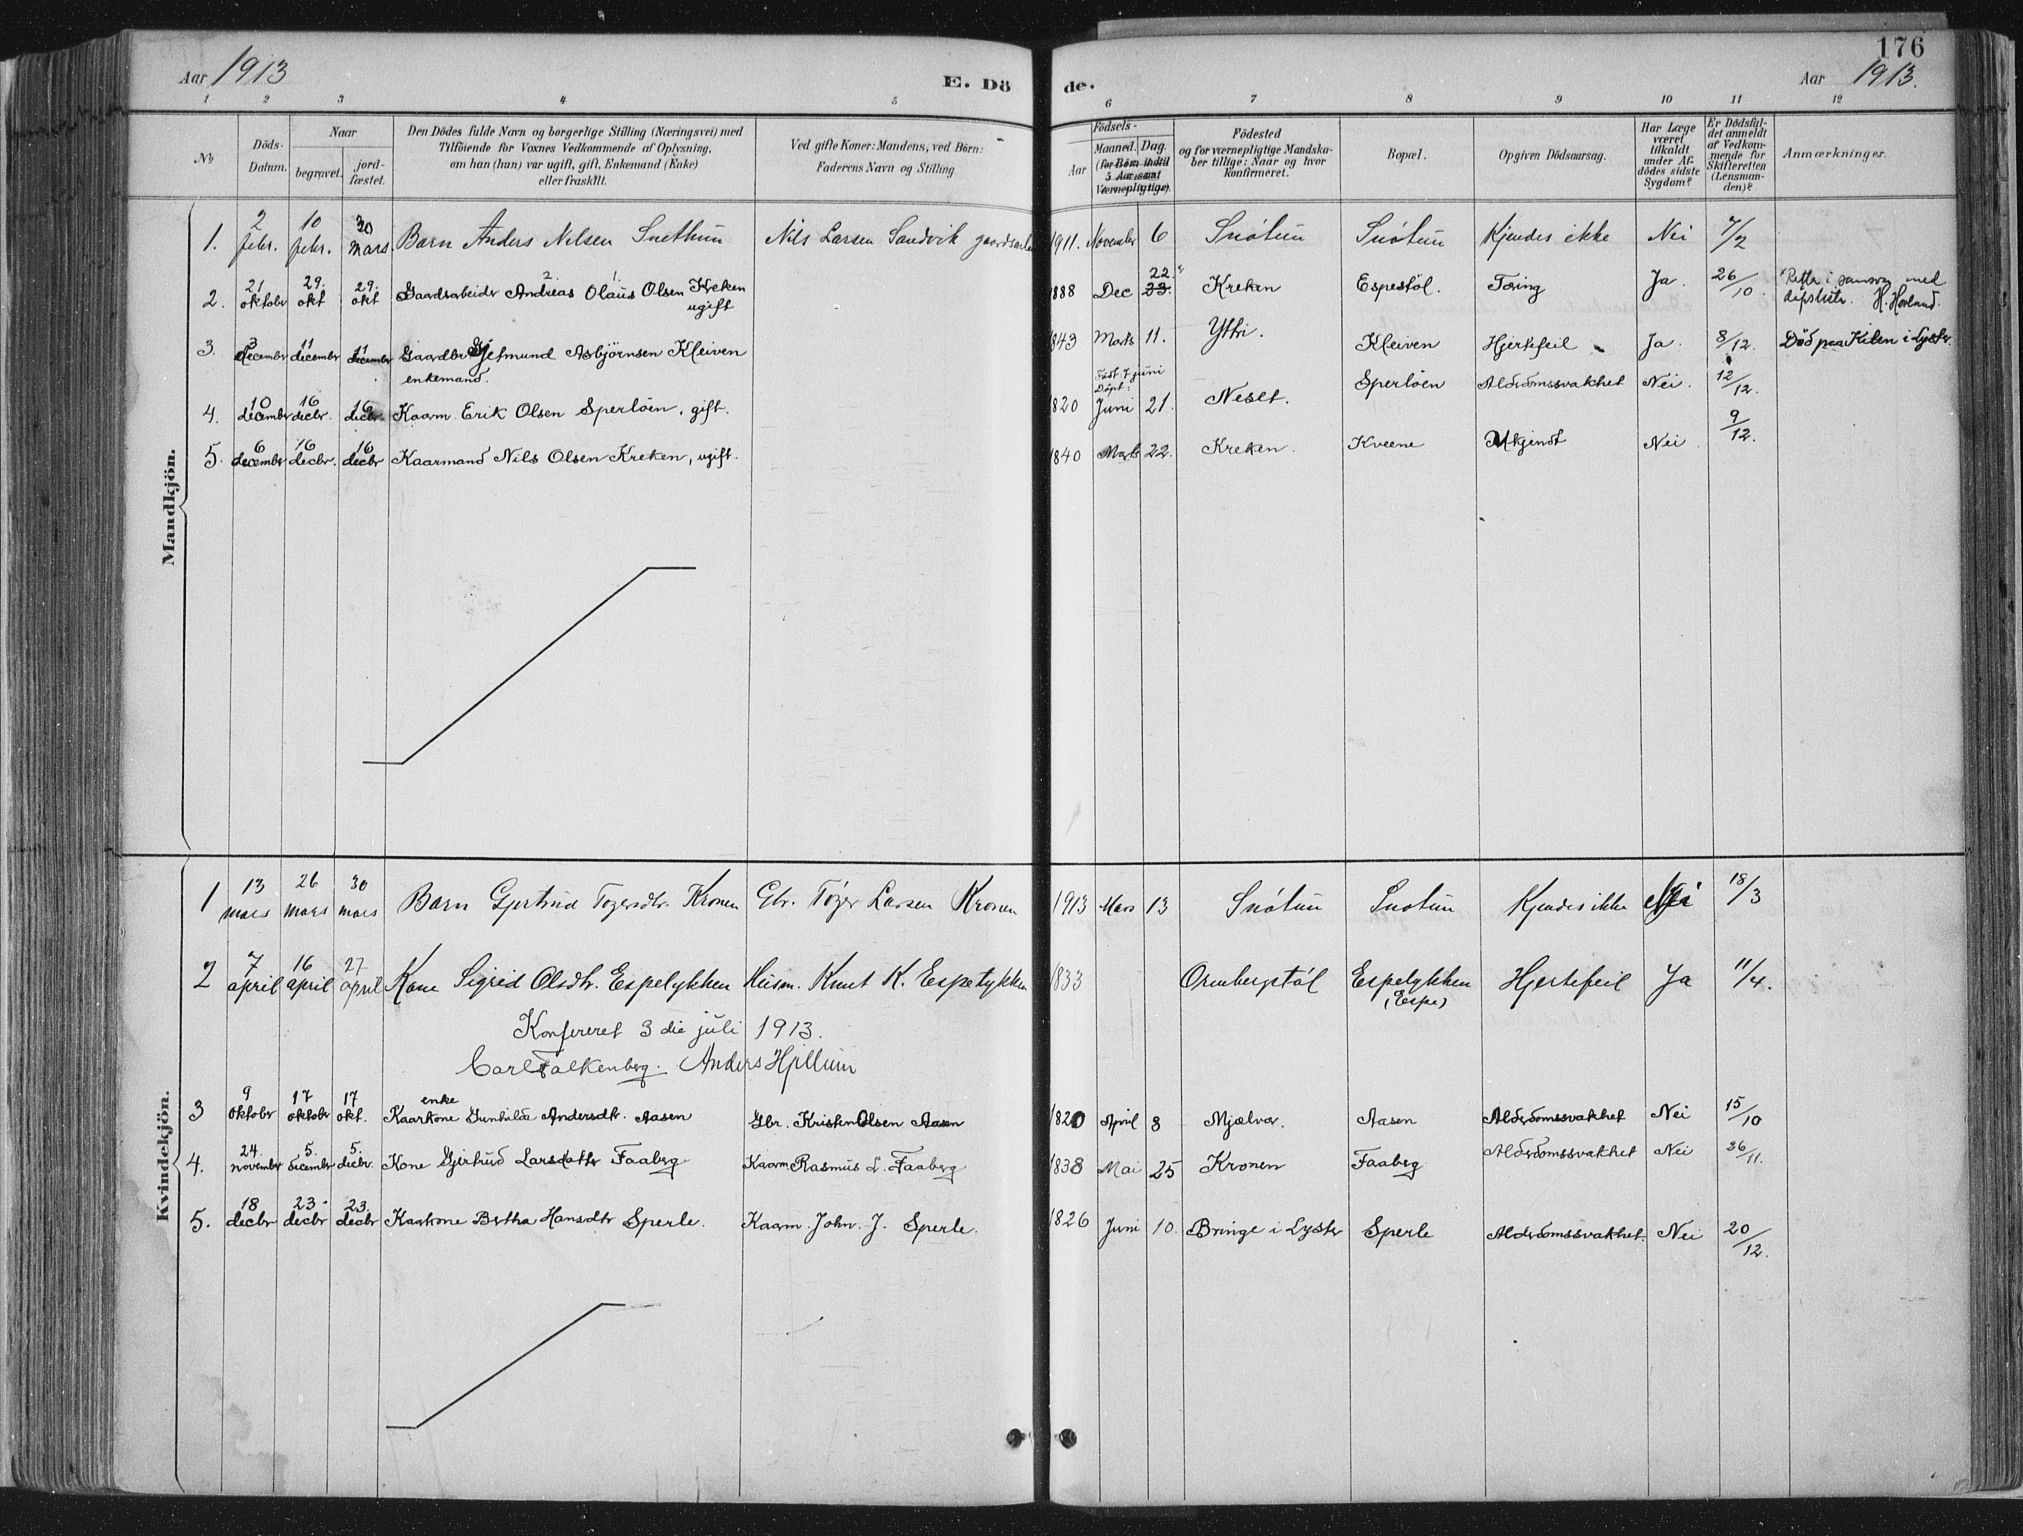 176
Aar 1913
E. Dö
de.
Aar 1913.
1 2 3 4 5 6 7 8 9 10 11 12
No
Döds-Datum.
Naar
begravet.
jord-fæstet.
Den Dödes fulde Navn og borgerlige Stilling (Næringsvei) med
Tilföiende for Voxnes Vedkommende af Oplysning,
om han (hun) var ugift, gift, Enkemand (Enke)
eller fraskilt.
Ved gifte Koner: Mandens, ved Börn:
Faderens Navn og Stilling
Födsels-
Aar
Maaned. Dag.
(for Börn indtil
5 Aar samt
Værnepligtige).
Födested
og for værnepligtige Mandska-
ber tillige: Naar og hvor
konfirmeret.
Bopæl.
Opgiven Dödsaarsag.
Har Læge
været
tilkaldt
under Af-
dödes sidste
Sygdom?
Er Dödsfal-
det anmeldt
af Vedkom-
mende for
Skifteretten
(Lensman-
den)?
Anmærkninger.
Mandkjön.
1. 2 febr. 10 febr. 30 mars Barn Anders Nilsen Snethun Nils Larsen Sandvik 1911. November 6 Snøtun Snøtun Kjendes ikke Nei 7/2
2. 21 oktober 29. okt 29. okt Gaardsarbeider Andreas Olaus Olsen Kreken ugift 1888 Dec 22. 23. Kreken Espestøl. Tæring Ja. 26/10. Rettet i samsvar med dåpslistr. H. Hovland.
3. 3 december 11 december 11 december Gaardbr Gjetmund Asbjörnsen Kleiven enkemand. 1843 Marts 11. Yttri. Kleiven Hjertefeil Ja. 8/12. Död paa Kilen i Lyster.
4. 10 december 16 decbr. 16 decbr. Kaarm. Erik Olsen Sperloen, gift. 1820 Født 7 juni Döpt: Juni 21. Neset. Sperloen Alderdomssvakhet Nei. 12/12.
5. 6 december 16 decbr. 16 decbr Kaarmand Nils Olsen Kreken, ugift. 1840 Marts 22. Kreken. Kveene Ukjendt Nei. 9/12.
Kvindekjön.
1 13 mars 26 mars 30 mars Barn Gjertrud Tøgersdtr. Kronen Gbr. Tøger Larsen Kronen 1913 Mars 13 Snøtun Snøtun Kjendes ikke Nei 18/3
2 7 april 16 april 27 april Kone Sigrid Olsdtr. Espelykken Husm. Knut K. Espelykken 1833 Ormbergstøl Espelykken (Espe) Hjertefeil Ja 11/4.
Konfereret 3 die juli 1913.
Carl Falkenberg. Anders Hjellum
3 9 oktober 17 oktober 17 okt. Kaarkone enke Gunhilda Andersdtr. Aasen Gbr. Kristen Olsen Aasen 1820 April 8 Mjælver. Aasen Alderdomssvakhet Nei 15/10
4. 24. november 5. december 5. decbr. Kone Gjertrud Larsdatter Faaberg Kaarm. Rasmus L. Faaberg 1838 Mai 25 Kronen Faaberg Alderdomssvakhet Nei 26/11.
5. 18 decbr 23. decbr 23. decbr Kaarkone Bertha Hansdtr Sperle. Kaarm. John. J. Sperle. 1826 Juni 10. Bringe i Lyster Sperle Alderdomssvakhet. Nei 20/12.